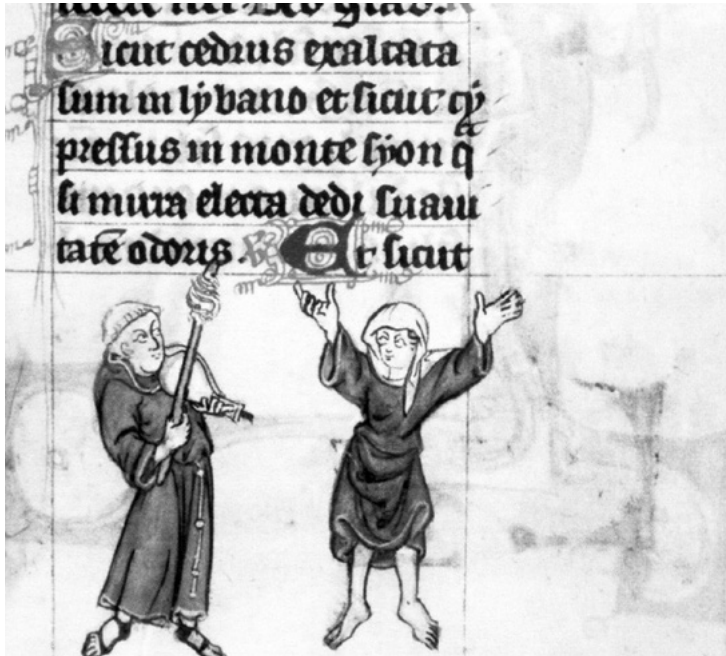 Sicut cedrus exaltata
sum in lybano et sicut cy
pressus in monte syon qͣ
si mirra electa dedi suaui
tatē odoris. Et sicut